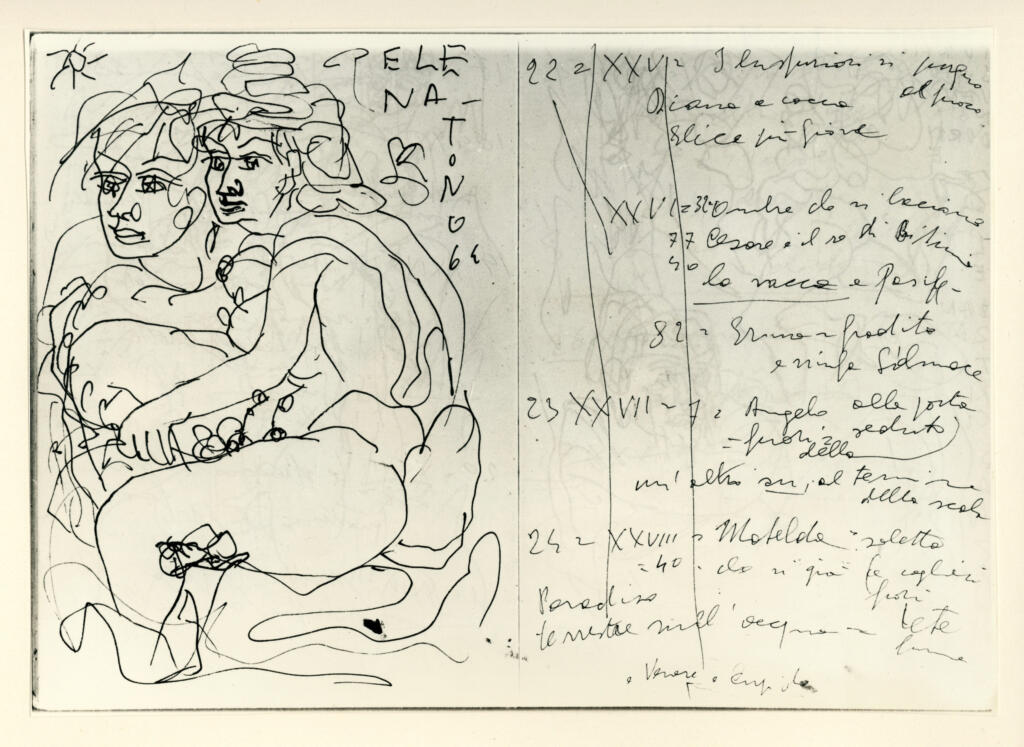 ELE
NA -
TONO
64
22 = XXVI = I lussuriosi si purgano
al fuoco
Diana e caccia
Elice più giove
XXVI = 34 Ombre che si baciano
77 Cesare e il re di Bitinia
40
la vacca e Pasife
82 = Ermafrodito
e ninfa Salmace
23 XXVII - 7 = Angelo alla porta
fuori = seduto
della
un altro su, al termine
della scala
24 = XXVIII = Matelda soletta
= 40 . che si già
fiori
Paradiso
terrestre sull' acqua = Lete
fiume
e Venere e Cupido